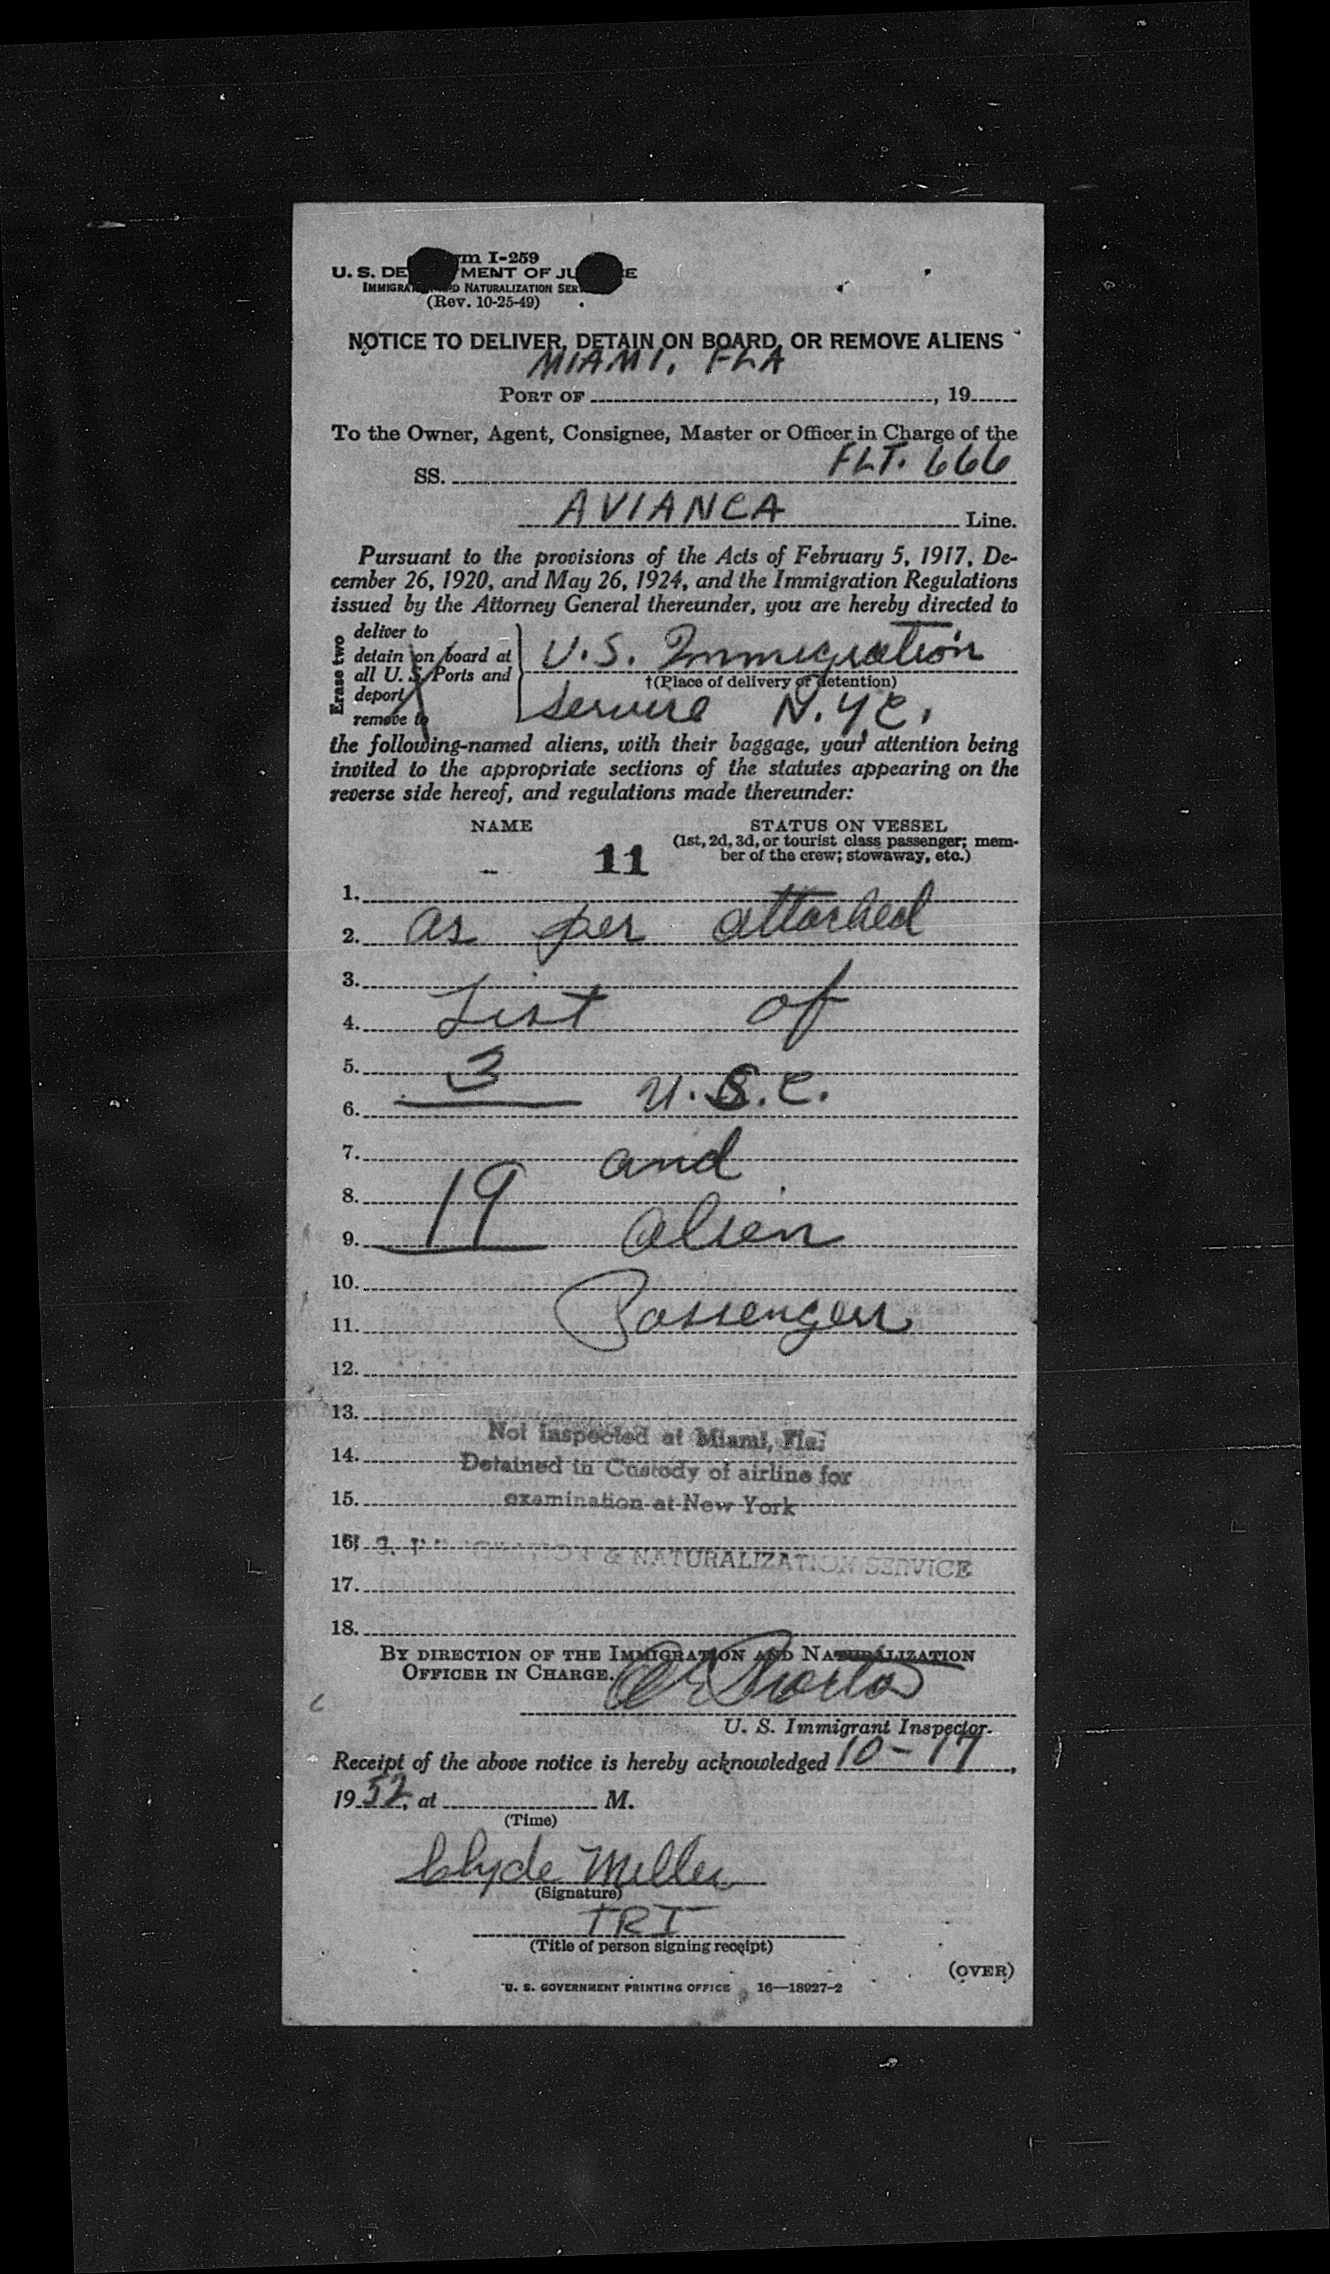 Form I-259
U. S. DEPARTMENT OF JUSTICE
IMMIGRATION AND NATURALIZATION SERVICE
(Rev. 10-25-49)
NOTICE TO DELIVER, DETAIN ON BOARD, OR REMOVE ALIENS
MIAMI, FLA
PORT OF , 19
To the Owner, Agent, Consignee, Master or Officer in Charge of the
SS. FLT. 666
AVIANCA Line.
Pursuant to the provisions of the Acts of February 5, 1917, De-
cember 26, 1920, and May 26, 1924, and the Immigration Regulations
issued by the Attorney General thereunder, you are hereby directed to
Erase two
deliver to
detain on board at
all U. S. Ports and
deport
remove to
U.S. Immigration
†(Place of delivery or detention)
Service N.Y.C.
the following-named aliens, with their baggage, your attention being
invited to the appropriate sections of the statutes appearing on the
reverse side hereof, and regulations made thereunder:
NAME STATUS ON VESSEL
(1st, 2d, 3d, or tourist class passenger; mem-
ber of the crew; stowaway, etc.)
11
1.
2. as per attached
3.
4. List of
5. 3 U.S.C.
6.
7. and
8.
9. 19 alien
10.
11. Passengers
12.
13.
Not inspected at Miami, Fla.
14. Detained in Custody of airline for
15. examination at New York
16. U. S. IMMIGRATION & NATURALIZATION SERVICE
17.
18.
BY DIRECTION OF THE IMMIGRATION AND NATURALIZATION
OFFICER IN CHARGE.
U. S. Immigrant Inspector.
Receipt of the above notice is hereby acknowledged 10-17,
1952, at M.
(Time)
Clyde Miller
(Signature)
TRI
(Title of person signing receipt)
(OVER)
U. S. GOVERNMENT PRINTING OFFICE 16—18927-2